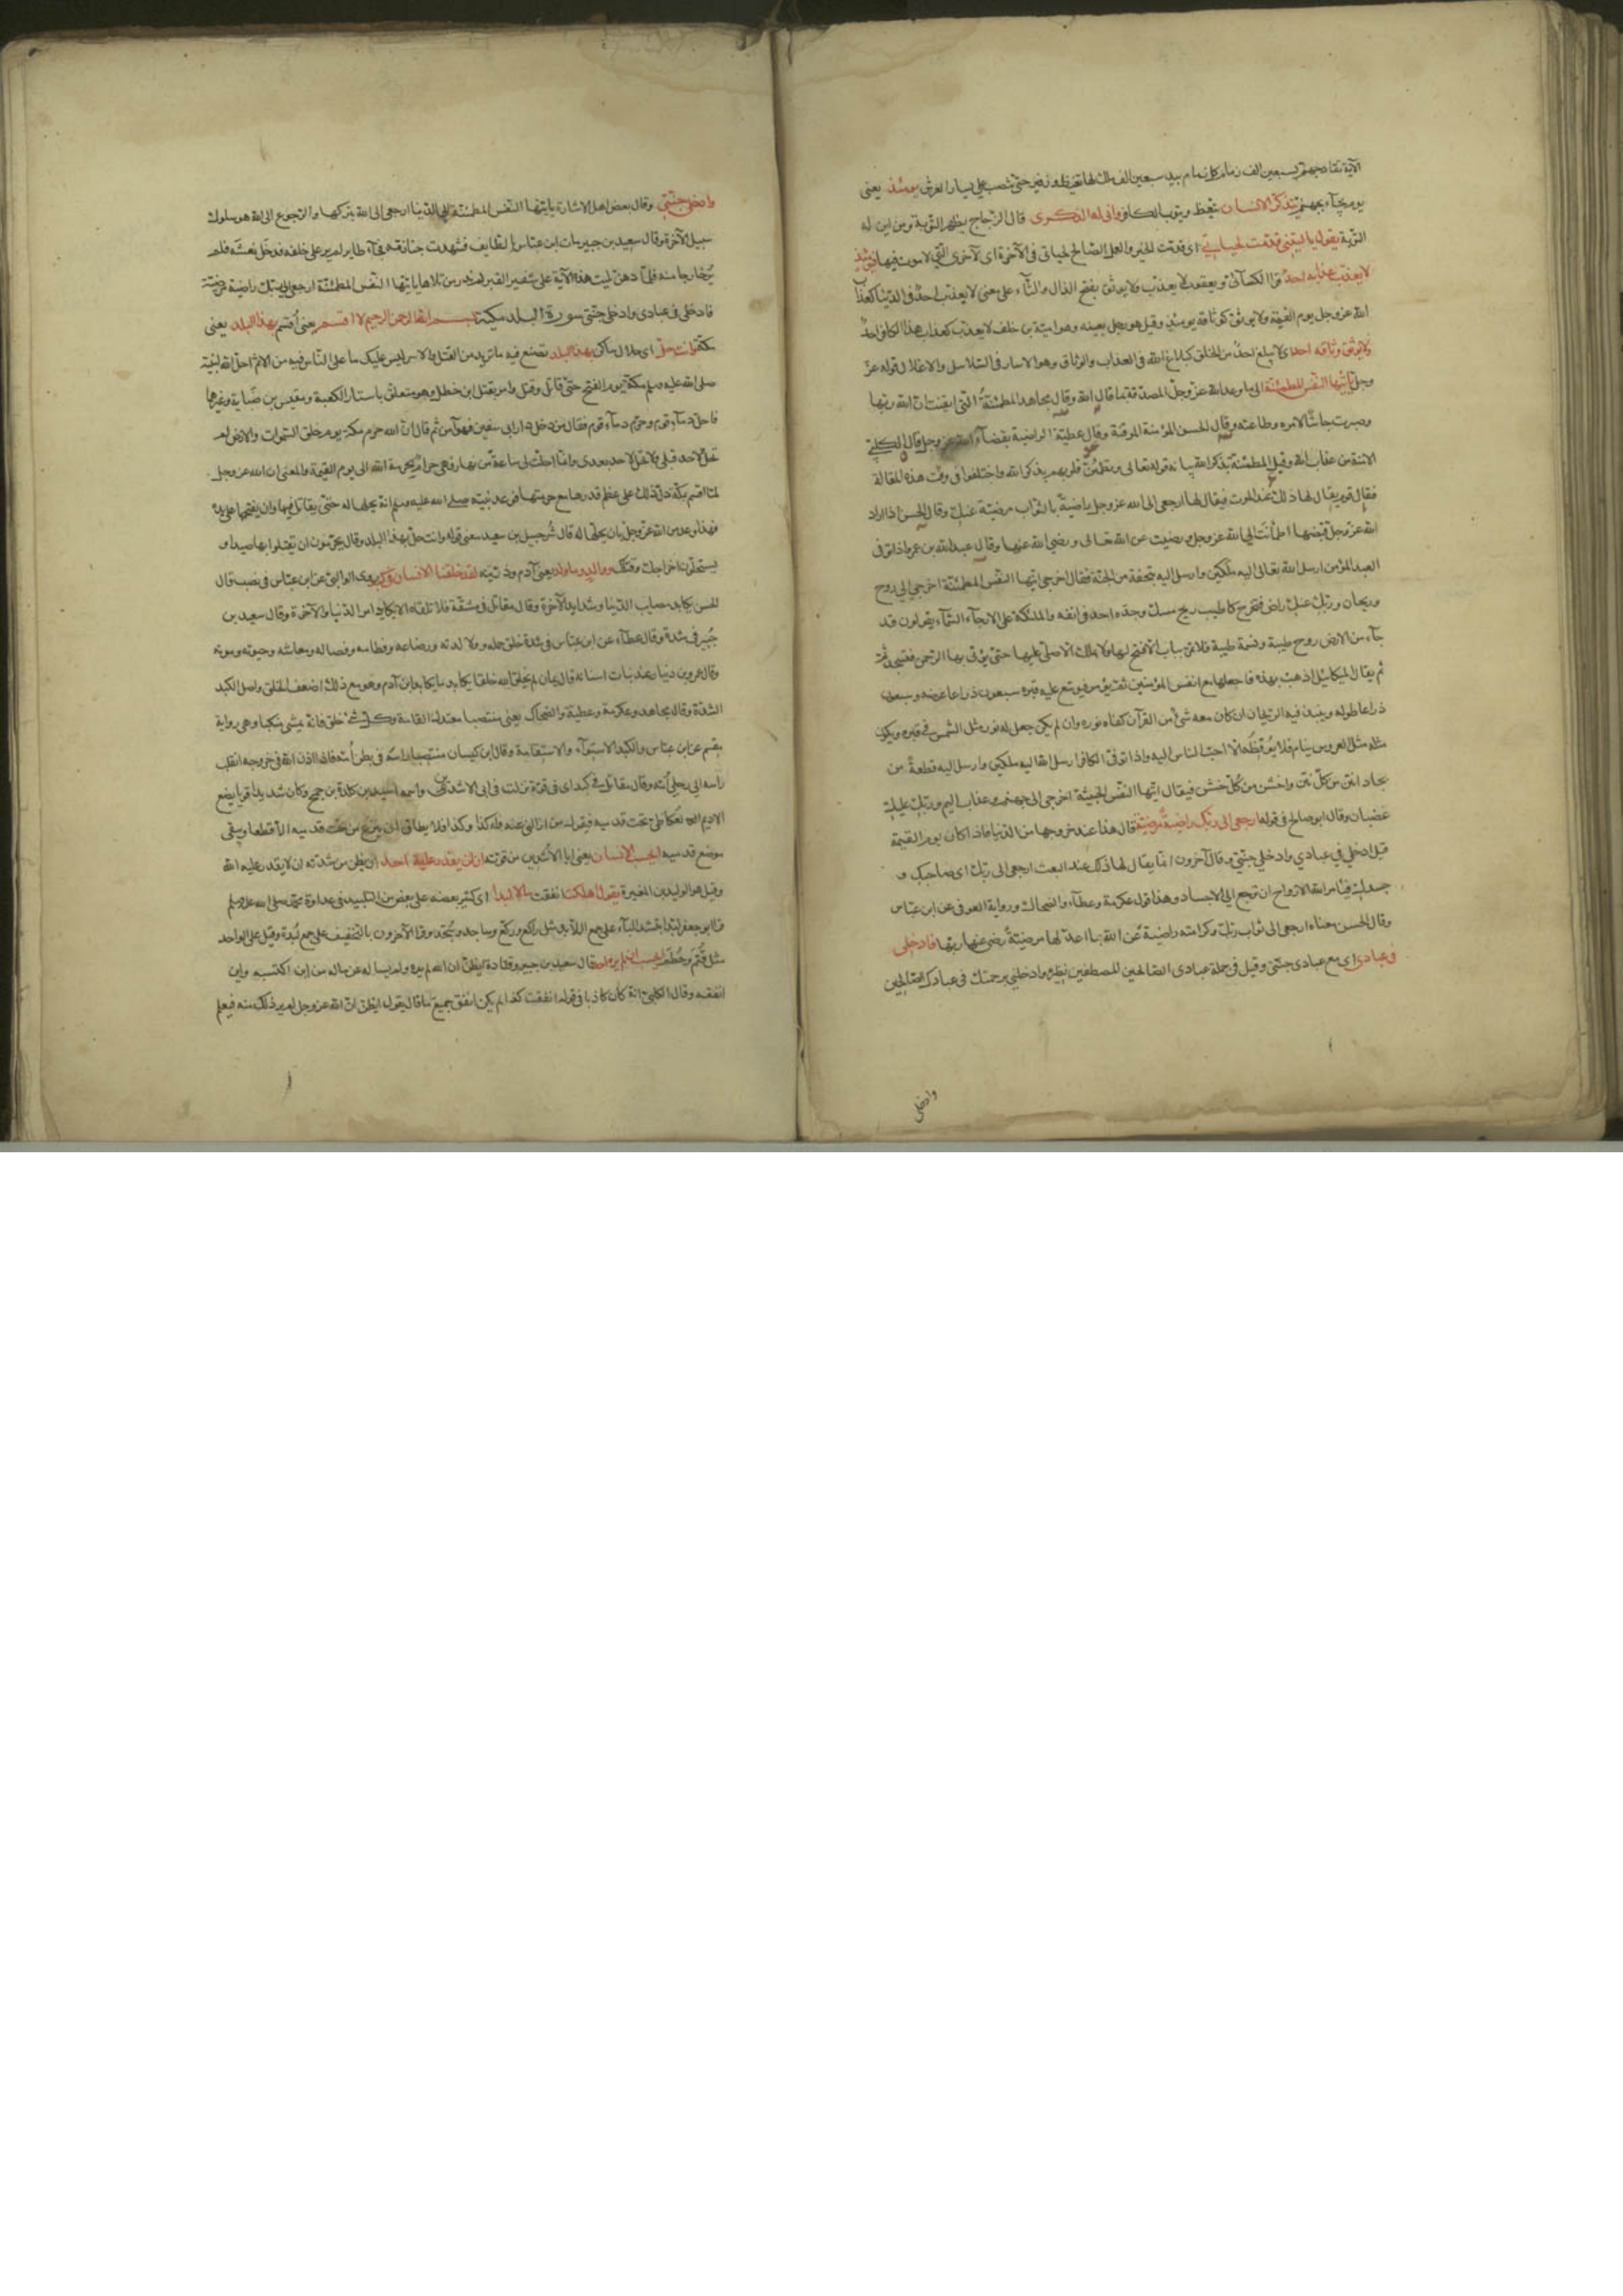 الآية تقاد جهنم بسبعين الف زمام كل زمام بيد سبعين الف ملك لها تغيظ و زفير حتى تنصب على يسار العرش يومئذ يعنى
يوم يجآء بجهنم يتذكر الانسان يتعظ ويتوب الكافر وانى له الذكرى قال الزجاج يظهر التوبة ومن اين له
التوبة يقول يا ليتنى قدمت لحياتى اى قدمت الخير والعمل الصالح لحياتى فى الآخرة اى لآخرتى التى لا موت فيها فيومئذ
لا يعذب عذابه احد قرا الكسآئى ويعقوب لا يعذب ولا يوثق بفتح الذال والثآء على معنى لا يعذب احد فى الدنيا كعذاب
الله عز وجل يوم القيمة ولا يوثق كوثاقه يومئذ وقيل هو رجل بعينه وهو امية بن خلف لا يعذب كعذاب هذا الكافر احد
ولا يوثق وثاقه احد اى لا يبلغ احد من الخلق كبلاغ الله فى العذاب والوثاق وهو الاسار فى السلاسل والاغلال قوله عز
وجل يا ايتها النفس المطمئنة الى ما وعد الله عز وجل المصدقة بما قال الله وقال مجاهد المطمئنة التى ايقنت ان الله ربها
وصبرت جاشا لامره وطاعته وقال الحسن المؤمنة الموقنة وقال عطية الراضية بقضآء الله عز وجل وقال الكلبى
الامنة من عذاب الله وقيل المطمئنة بذكر الله بيانه قوله تعالى وتطمئن قلوبهم بذكر الله واختلفوا فى وقت هذه المقالة
فقال قوم يقال لها ذلك عند الموت فيقال لها ارجعى الى الله عز وجل راضية بالثواب مرضية عنك وقال الحسن اذا اراد
الله عز وجل قبضها اطمأنت الى الله عز وجل ورضيت عن الله تعالى و رضى الله عنها وقال عبد الله بن عمرو اذا توفى
العبد المؤمن ارسل الله تعالى اليه ملكين وارسل اليه بتحفة من الجنة فقال اخرجى ايتها النفس المطمئنة اخرجى الى روح
وريحان وربك عنك راض فتخرج كاطيب ريح مسك وجده احد فى انفه والملئكة على الارجآء السمآء يقولون قد
جآء من الارض روح طيبة ونسمة طيبة فلا تمر بباب الا فتح لها ولا بملك الا صلى عليها حتى يؤتى بها الرحمن فتسجد ثم
ثم يقال لميكائيل اذهب بهذه فاجعلها مع انفس المؤمنين ثم يؤمر فيوسع عليه قبره سبعون ذراعا عرضه وسبعون
ذراعا طوله وينبذ فيه الريحان ان كان معه شئ من القرآن كفاه نوره وان لم يكن جعل له نور مثل الشمس فى قبره ويكون
مثله مثل العروس ينام فلا يوقظه الا احب الناس اليه واذا توفى الكافر ارسل الله اليه ملكين وارسل اليه قطعة من
بجاد انتن من كل نتن واخشن من كل خشن فيقال ايتها النفس الخبيثة اخرجى الى جهنم وعذاب اليم وربك عليك
غضبان وقال ابو صالح فى قوله ارجعى الى ربك راضية مرضية قال هذا عند خروجها من الدنيا فاذا كان يوم القيمة
قيل ادخلى فى عبادى وادخلى جنتى وقال آخرون انما يقال لها ذلك عند البعث ارجعى الى ربك اى صاحبك و
جسدك فيامر الله الارواح ان ترجع الى الاجساد وهذا قول عكرمة وعطآء والضحاك ورواية العوفى عن ابن عباس
وقال الحسن معناه ارجعى الى ثواب ربك وكرامته راضية عن الله بما اعد لها مرضية رضى عنها ربها فادخلى
فى عبادى اى مع عبادى جنتى وقيل فى جملة عبادى الصالحين المصطفين نظيره وادخلنى برحمتك فى عبادك الصالحين
وادخلى
وادخلى جنتى وقال بعض اهل الاشارة يا ايتها النفس المطمئنة الى الدنيا ارجعى الى الله بتركها والرجوع الى الله هو سلوك
سبيل الآخرة وقال سعيد بن جبير مات ابن عباس بالطايف فشهدت جنازته فجآء طاير لم ير على خلقه فدخل نعشه فلم
ير خارجا منه فلما دفن تليت هذه الآية على شفير القبر لم ندر من تلاها يا ايتها النفس المطمئنة ارجعى الى ربك راضية مرضية
فادخلى فى عبادى وادخلى جنتى سورة البلد مكية بسم الله الرحمن الرحيم لا اقسم يعنى اقسم بهذا البلد يعنى
مكة وانت حل اى حلال ساكن بهذا البلد تصنع فيه ما تريد من القتل والاسر ليس عليك ما على الناس فيه من الاثم احل الله لنبيه
صلى الله عليه وسلم مكة يوم الفتح حتى قاتل وقتل وامر بقتل ابن خطل وهو متعلق باستار الكعبة ومقيس بن ضبابة وغيرهما
فاحل دمآء قوم وحرم دمآء قوم فقال من دخل دار ابى سفين فهو آمن ثم قال ان الله حرم مكة يوم خلق السموات والارض لم
تحل لاحد قبلى ولا تحل لاحد بعدى وانما احلت لى ساعة من نهار فهى حرام بحرمة الله الى يوم القيمة والمعنى ان الله عز وجل
لما اقسم بمكة دل ذلك على عظم قدرها مع حرمتها فوعد نبيه صلى الله عليه وسلم انه يحلها له حتى يقاتل فيها وان يفتحها على يده
فهذا وعد من الله عز وجل بان يحلها له قال شرحبيل بن سعيد معنى قوله وانت حل بهذا البلد وقال يحرمون ان يقتلوا بها صيدا و
يستحلون اخراجك وقتلك ووالد وما ولد يعنى آدم وذريته لقد خلقنا الانسان فى كبد روى الوالبى عن ابن عباس فى نصب قال
الحسن يكابد مصايب الدنيا وشدايد الآخرة وقال مقاتل فى مشقة فلا تلقاه الا يكابد امر الدنيا والآخرة وقال سعيد بن
جبير فى شدة وقال عطآء عن ابن عباس فى شدة خلق حمله وولادته ورضاعه وفطامه وفصاله ومعاشه وحيوته وموته
وقال عمرو بن دينار عند نبات اسنانه قال يمان لم يخلق الله خلقا يكابد ما يكابد ابن آدم وهو مع ذلك اضعف الخلق واصل الكبد
الشدة وقال مجاهد وعكرمة وعطية والضحاك يعنى منتصبا معتدل القامة وكل شئ خلق فانه يمشى مكبا وهى رواية
مقسم عن ابن عباس والكبد الاستوآء والاستقامة وقال ابن كيسان منتصبا راسه فى بطن امه فاذا اذن الله فى خروجه انقلب
راسه الى رجلى امه وقال مقاتل فى كبد اى فى قوة نزلت فى ابى الاشدين واسمه اسيد بن كلدة بن جمح وكان شديدا قويا يضع
الاديم العكاظى تحت قدميه فيقول من ازالنى عنه فله كذا وكذا فلا يطاق ان ينزع من تحت قدميه الا قطعا ويبقى
موضع قدميه ايحسب الانسان يعنى ابا الاشدين من قوته ان لن يقدر عليه احد اى يظن من شدته ان لا يقدر عليه الله
وقيل هو الوليد بن المغيرة يقول اهلكت انفقت مالا لبدا اى كثيرا بعضه على بعض من التلبيد فى عداوة محمد صلى الله عليه وسلم
قرا ابو جعفر لبدا بتشديد البآء على جمع لابد مثل راكع وركع وساجد وسجد وقرا الآخرون بالتخفيف على جمع لبدة وقيل على الواحد
مثل قثم وحطم ايحسب ان لم يره احد قال سعيد بن جبير وقتادة ايظن ان الله لم يره ولم يساله عن ماله من اين اكتسبه واين
انفقه وقال الكلبى انه كان كاذبا فى قوله انفقت كذا لم يكن انفق جميع ما قال يقول ايظن ان الله عز وجل لم ير ذلك منه فيعلم